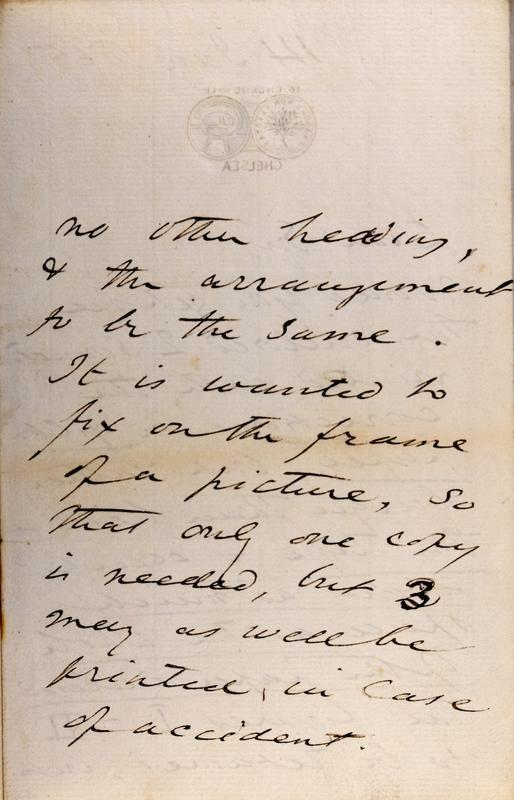 no other heading,
& the arrangement
to be the same.
It is wanted to
fix on the frame
of a picture, so
that only one copy
is needed, but 3
may as well be
printed, in case
of accident.